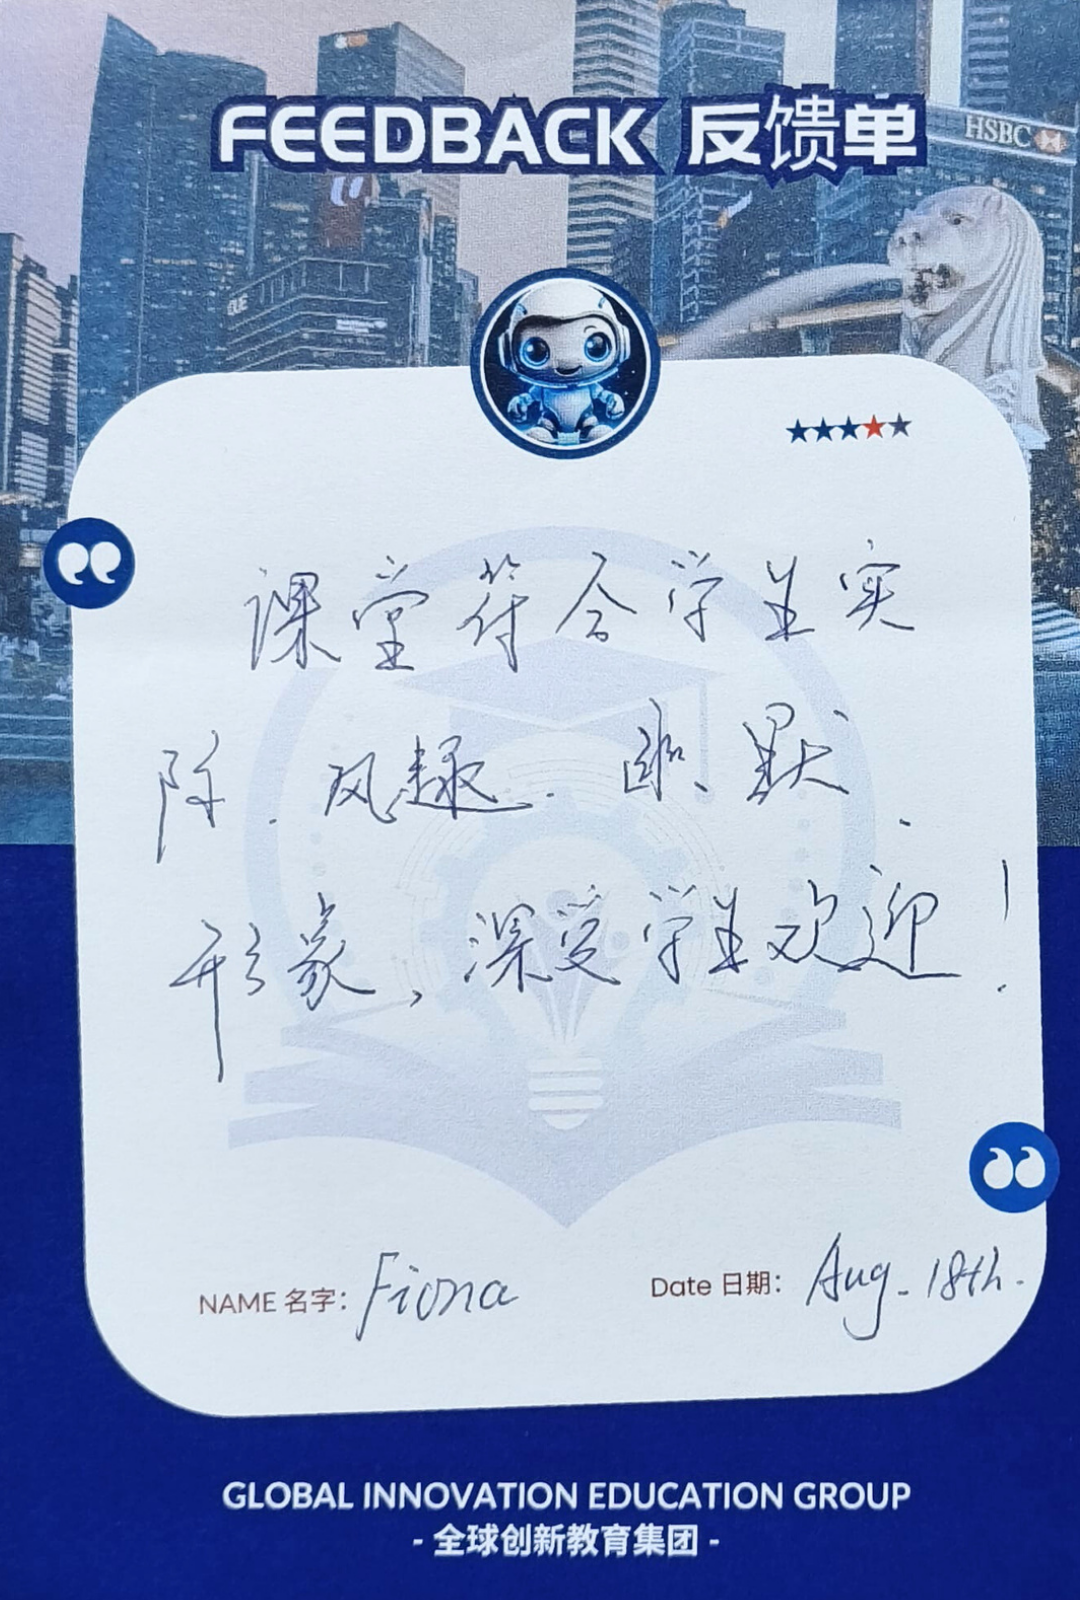 FEEDBACK 反馈单
HSBC
课堂符合学生实
际.风趣.幽默.
形象,深受学生欢迎!
NAME 名字: Fiona
Date 日期: Aug. 18th.
GLOBAL INNOVATION EDUCATION GROUP
- 全球创新教育集团 -